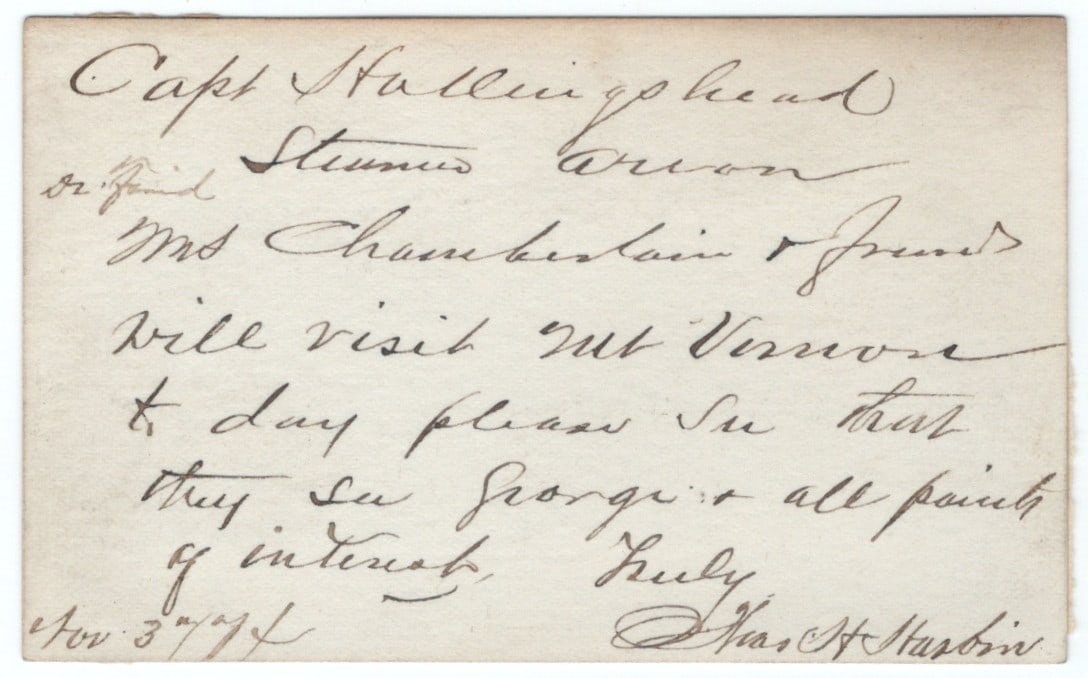 Capt Hollingshead
Steamer Arrow
Dr. Friend
Mrs Chamberlain & friends
will visit Mt Vernon
to day please see that
they see George & all points
of interest, Truly
Thos H Harbin
Nov 3